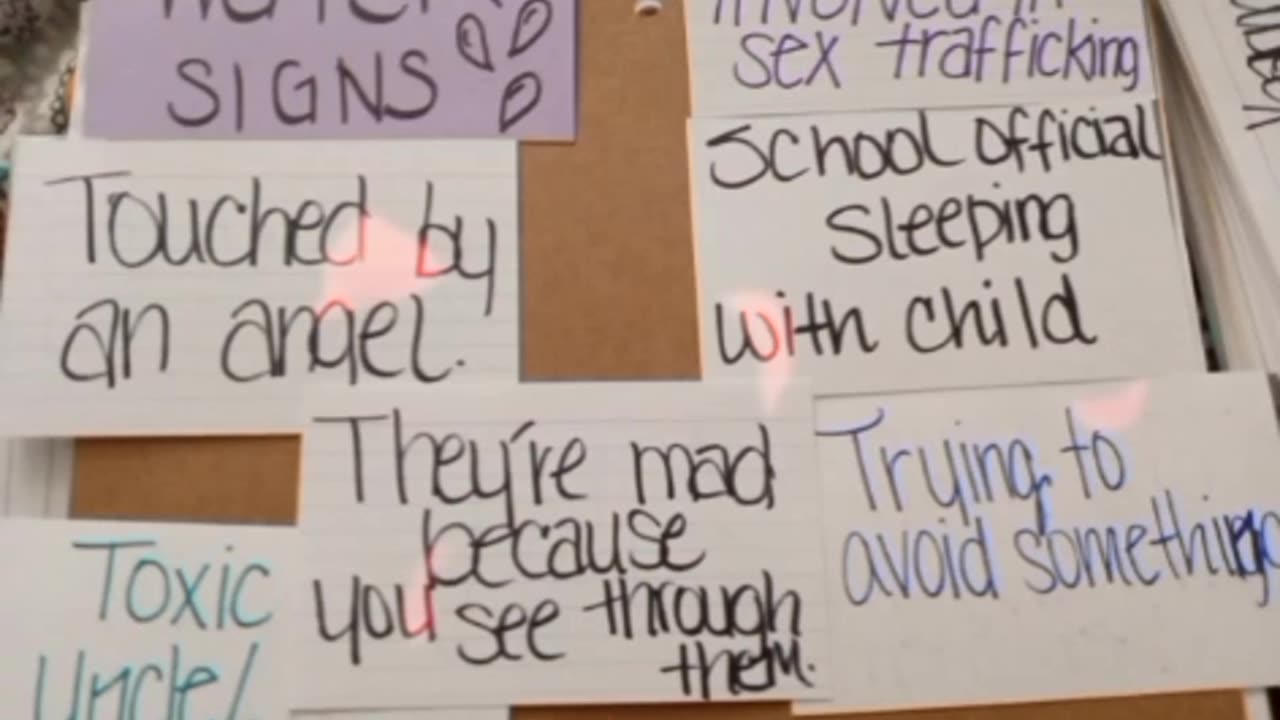 WATER
SIGNS
involved in
sex trafficking
Touched by
an angel.
School official
sleeping
with child
They're mad
because
you see through
them.
Trying to
avoid something
Toxic
Uncle/